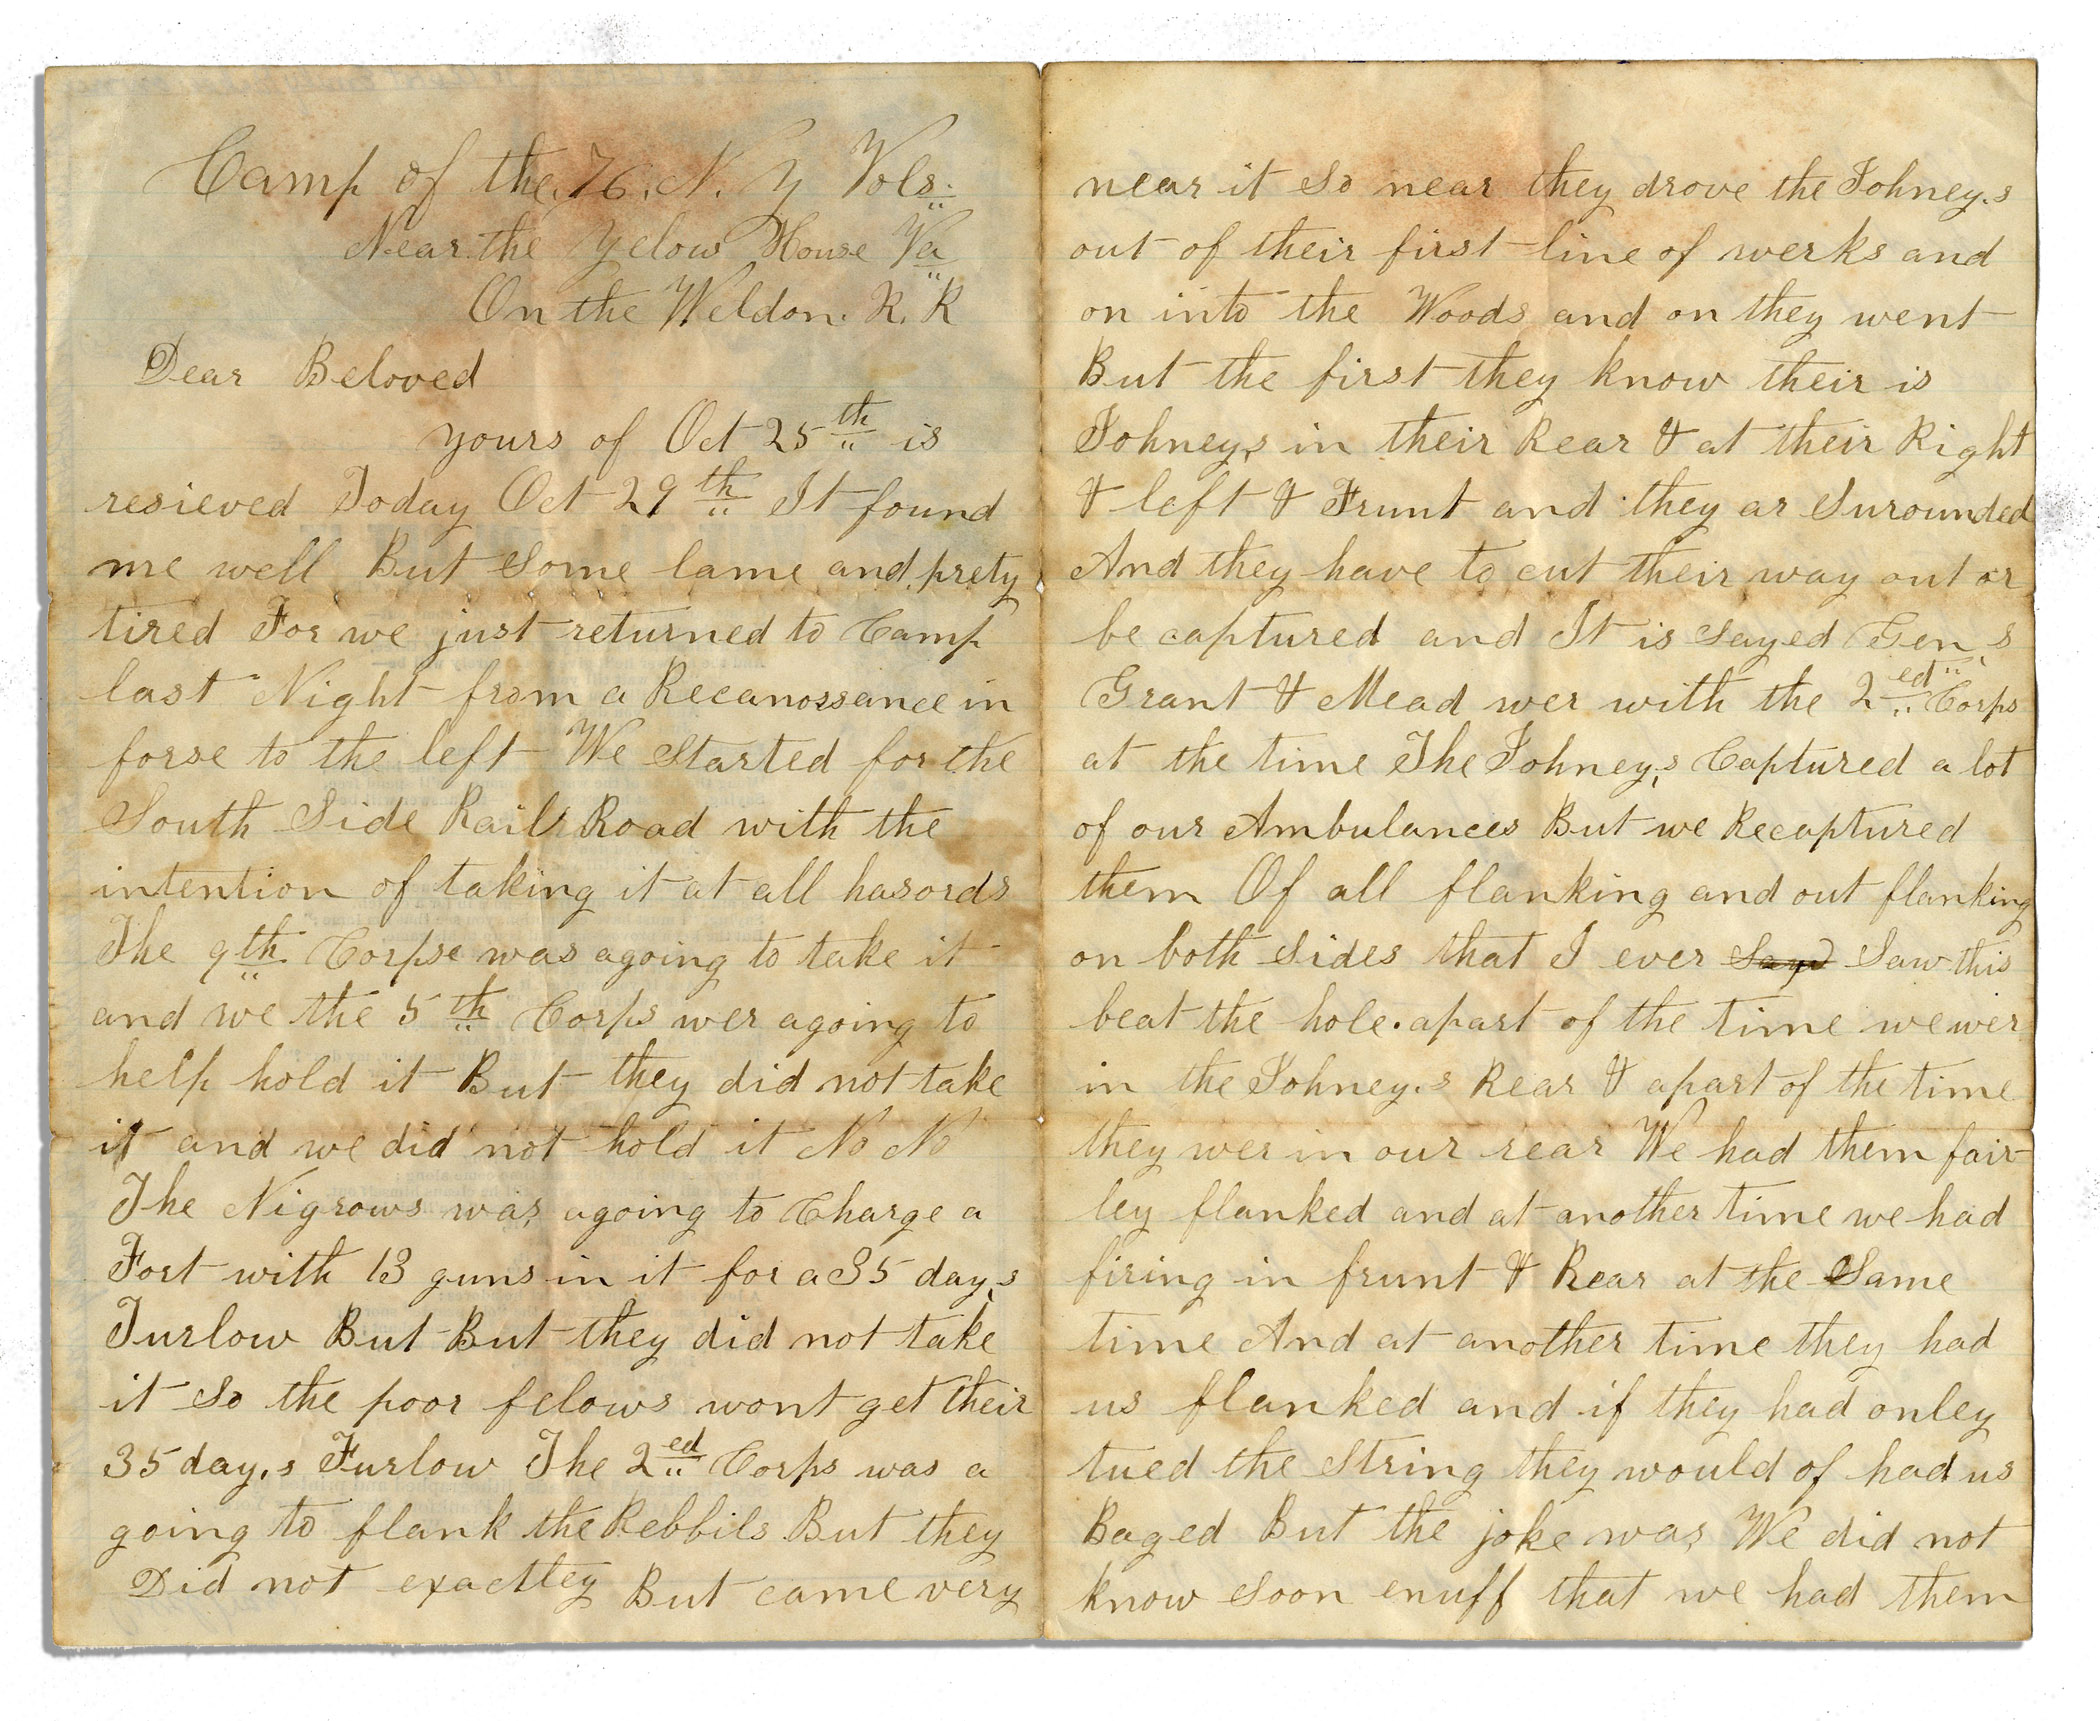 Camp of the 76. N. Y Vols.
Near the Yelow House Va
On the Weldon. R. R
Dear Beloved
yours of Oct 25th is
resieved Today Oct 29th It found
me well But Some lame and prety
tired For we just returned to Camp
last Night from a Recanossance in
forse to the left We Started for the
South Side Rail Road with the
intention of taking it at all hasords
The 9th Corpse was agoing to take it
and we the 5th Corps wer agoing to
help hold it But they did not take
it and we did not hold it No No
The Nigrows was agoing to Charge a
Fort with 13 guns in it for a 35 day,s
Furlow But But they did not take
it So the poor felows wont get their
35 day,s Furlow The 2ed Corps was a
going to flank the Rebbils But they
Did not exactley But came very
near it So near they drove the Johney,s
out of their first line of werks and
on into the Woods and on they went
But the first they know their is
Johney,s in their Rear & at their Right
& left & Frunt and they ar Surounded
And they have to cut their way out or
be captured and It is Sayed Gen,s
Grant & Mead wer with the 2ed Corps
at the time The Johney,s Captured a lot
of our Ambulances But we Recaptured
them Of all flanking and out flanking
on both Sides that I ever Saw this
beat the hole. apart of the time we wer
in the Johney,s Rear & apart of the time
they wer in our rear We had them fair-
ley flanked and at another time we had
firing in frunt & Rear at the Same
time And at another time they had
us flanked and if they had onley
tued the String they would of had us
Baged But the joke was We did not
know Soon enuff that we had them